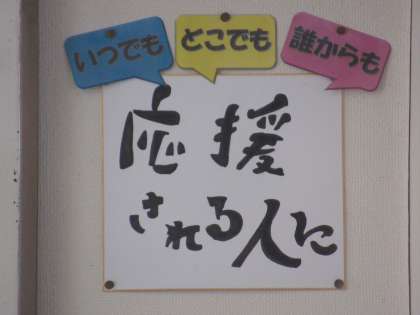 いつでも
どこでも
誰からも
応援
される人に